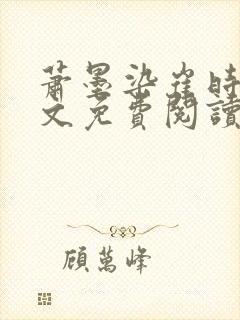 蕭墨染崔時
文免費閱讀
顧萬峰